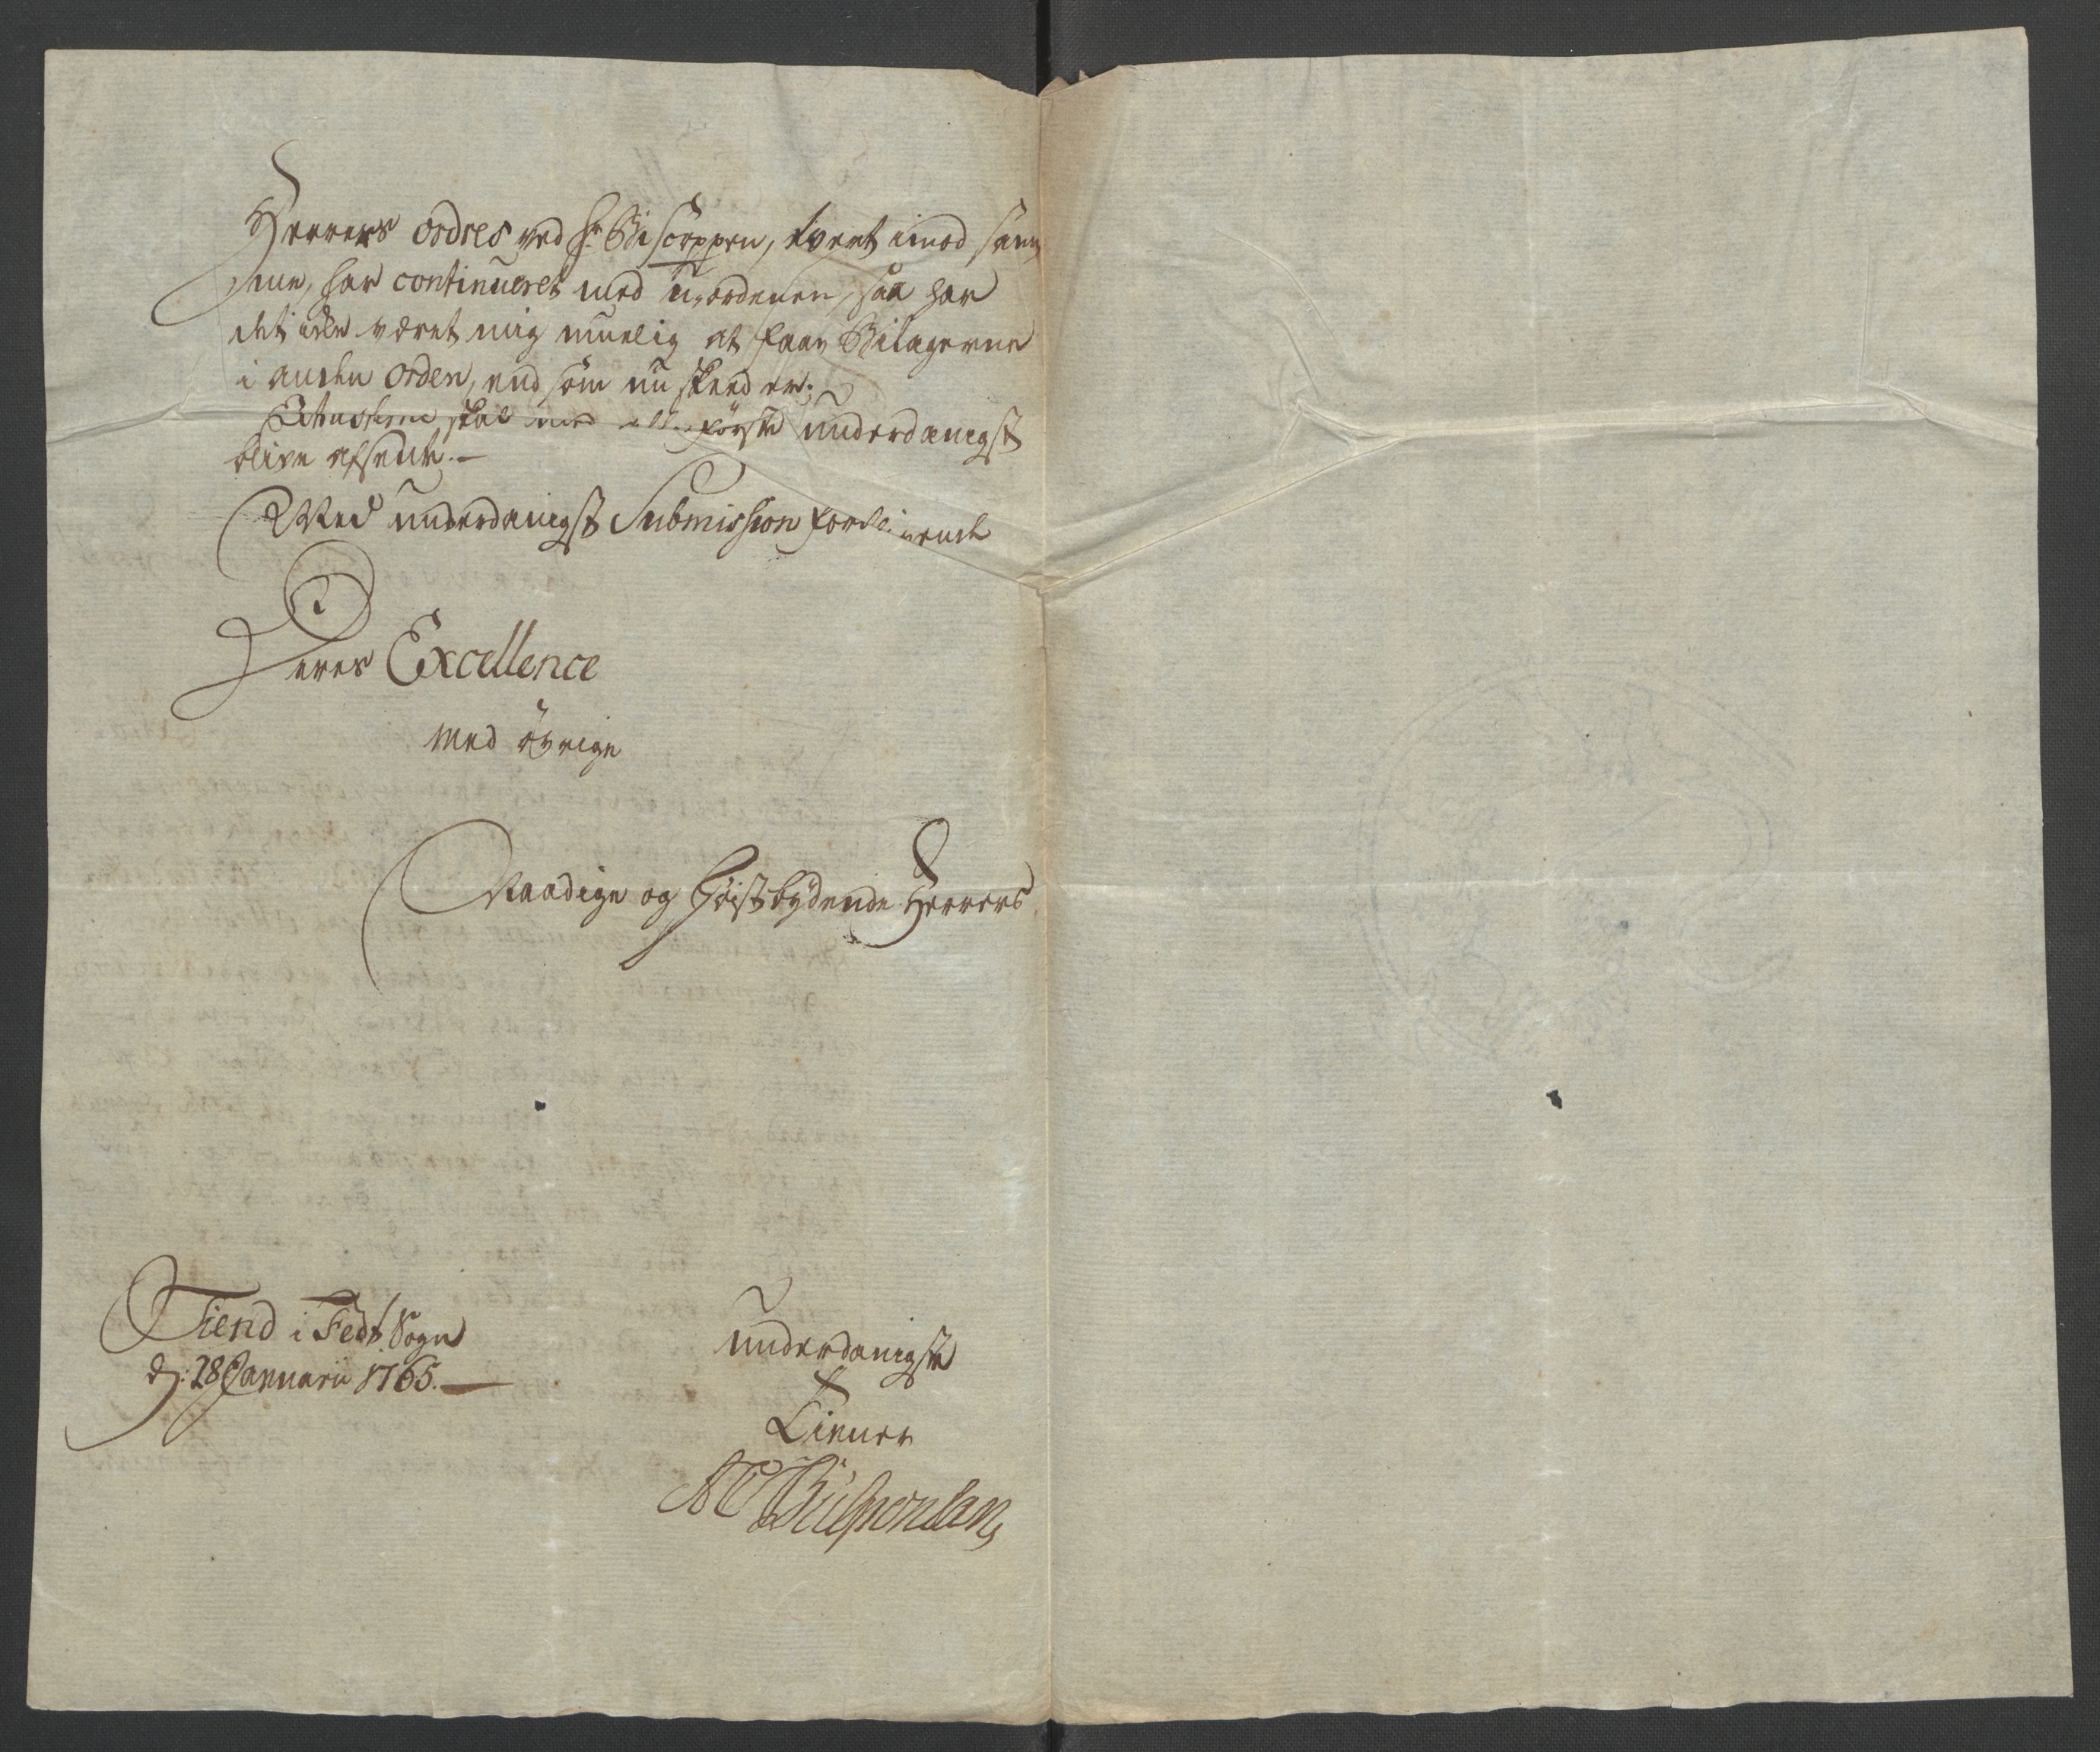 Herrers ordres ved Hr Biscoppen, tvert imod sam
me, har continueret med uordenen, saa har
det icke været mig muelig at faae Bilagerne
i anden orden, end som nu skeed er;
skal med første underdanigst
blive afsendt.
Med underdanigst Submission forblivende
Deres Excellence
med øvrige
Naadige og høistbydende Herrers
Tiend i Fedt Sogn
d: 28 Januarii 1765.
underdanigste
Tiener